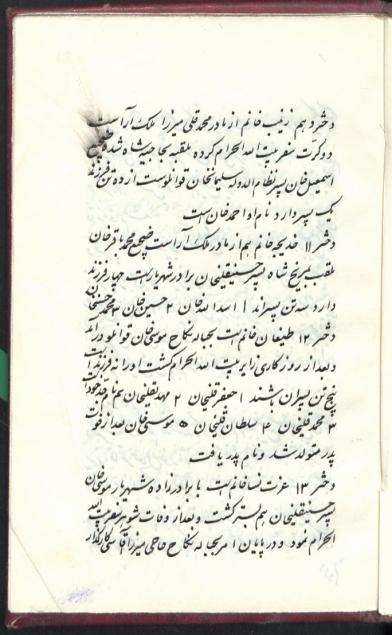 دختر دهم زینب خانم از مادر محمدقلی میرزا ملک آراست
دو کرّت سفر بیت الله الحرام کرده ملقبه بحاجیه شاه شده ضجیع
اسمعیل خان پسر نظام الدوله سلیمانخان قوانلوست از ده تن فرزند
یک پسر دارد نام او احمد خان است
دختر ۱۱ خدیجه خانم هم از مادر ملک آراست ضجیع محمد باقرخان
ملقب به بیخ شاه پسر حسینقلیخان برادر شهریار است چهار فرزند
دارد سه تن پسراند ۱ اسدالله خان ۲ حسین خان ۳ محمد حسنخان
دختر ۱۲ طیغان خانم است بحباله نکاح موسی خان قوانلو درآمد
و بعد از روزگاری زایر بیت الله الحرام کشت او را نه فرزند است
پنج تن پسران باشند ۱ جعفرقلیخان ۲ مهدیقلیخان همنام جد خود است
۳ محمدقلیخان ۴ سلطان قلیخان ۵ موسی خان بعد از فوت
پدر متولد شد و نام پدر یافت
دختر ۱۳ عزت نسا خانم است با برادرزاده شهریار موسی خان
پسر حسینقلیخان هم بستر کشت و بعد از وفات شوهر سفر بیت الله
الحرام نمود و در پایان امر بحباله نکاح حاجی میرزا آقاسی کارگذار